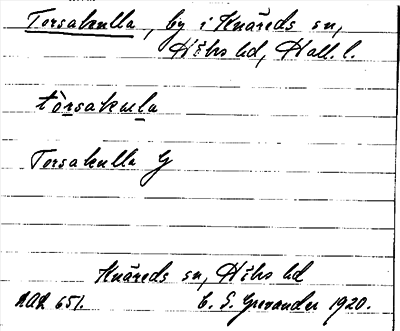 Torsakulla, by i Knäreds sn,
Höks hd, Hall. l.
tòrsakula
Torsakulla G
Knäreds sn, Höks hd
AOA 651. E. S. Grevander 1920.